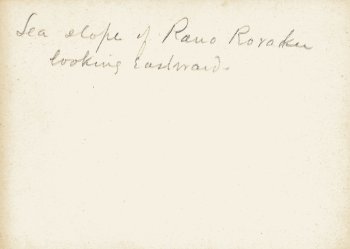 Sea slope of Rano Roraku
looking Eastward.